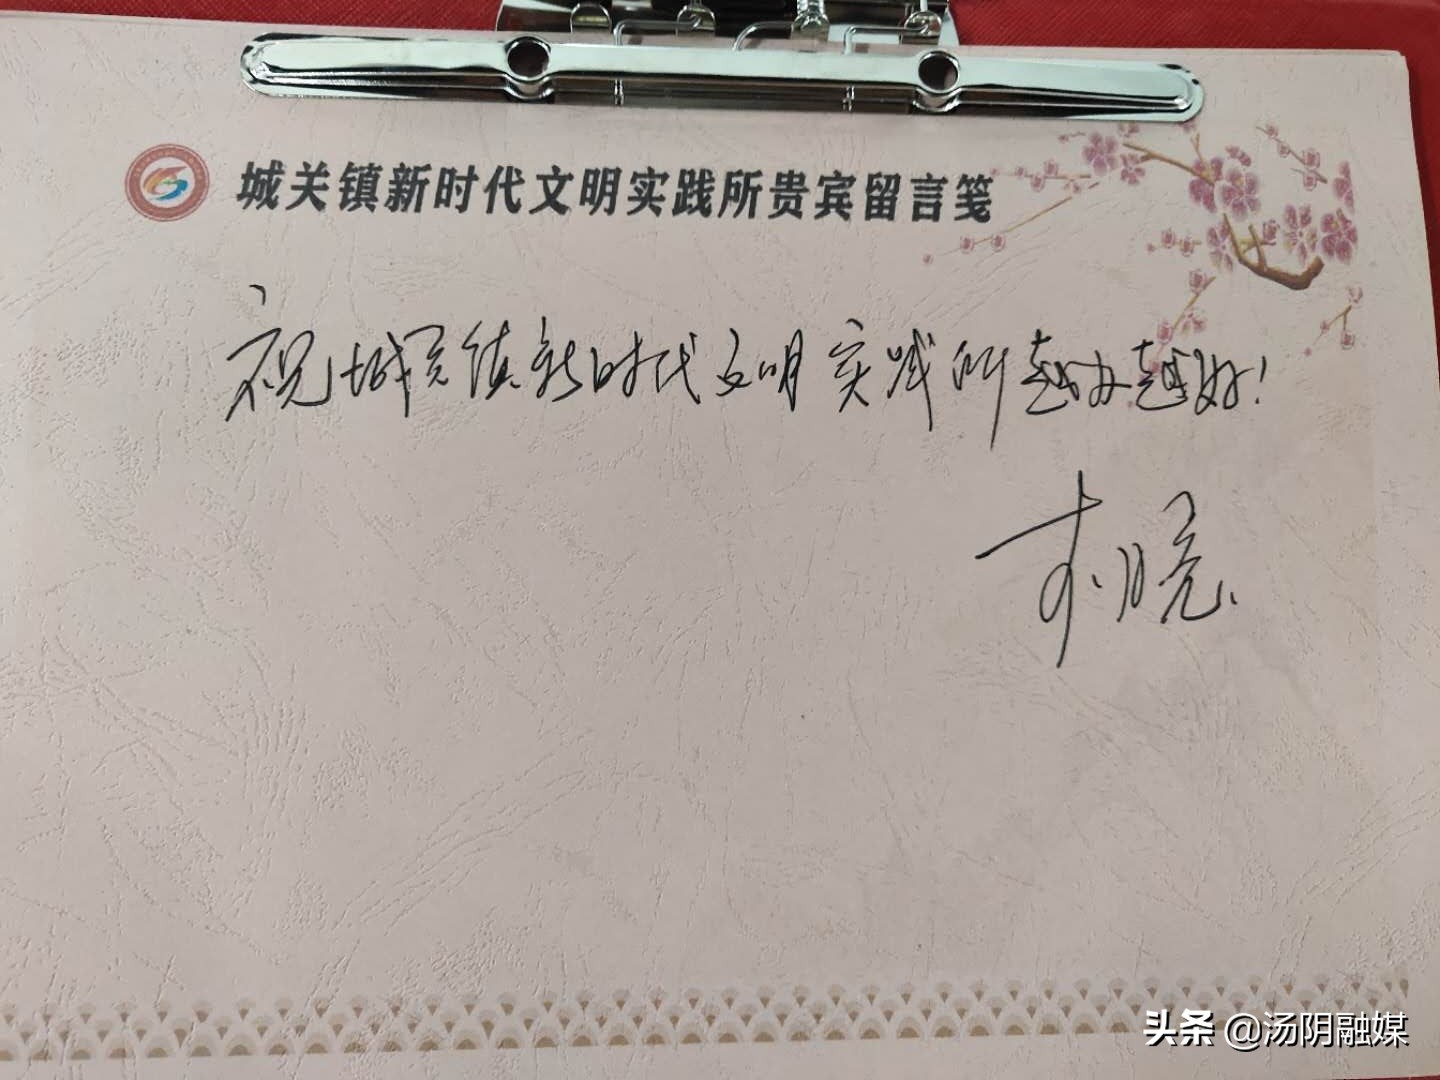 城关镇新时代文明实践所贵宾留言笺
祝城关镇新时代文明实践所越办越好!
头条 @汤阴融媒